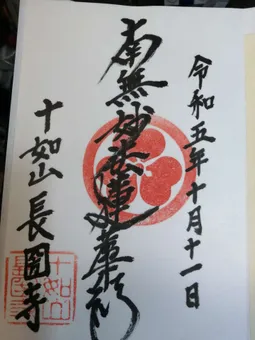 令和五年十月十一日
南無妙法蓮華経
十如山長圓寺